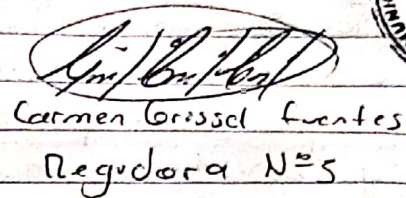 Carmen Grissel Fuentes
Regidora Nº 5